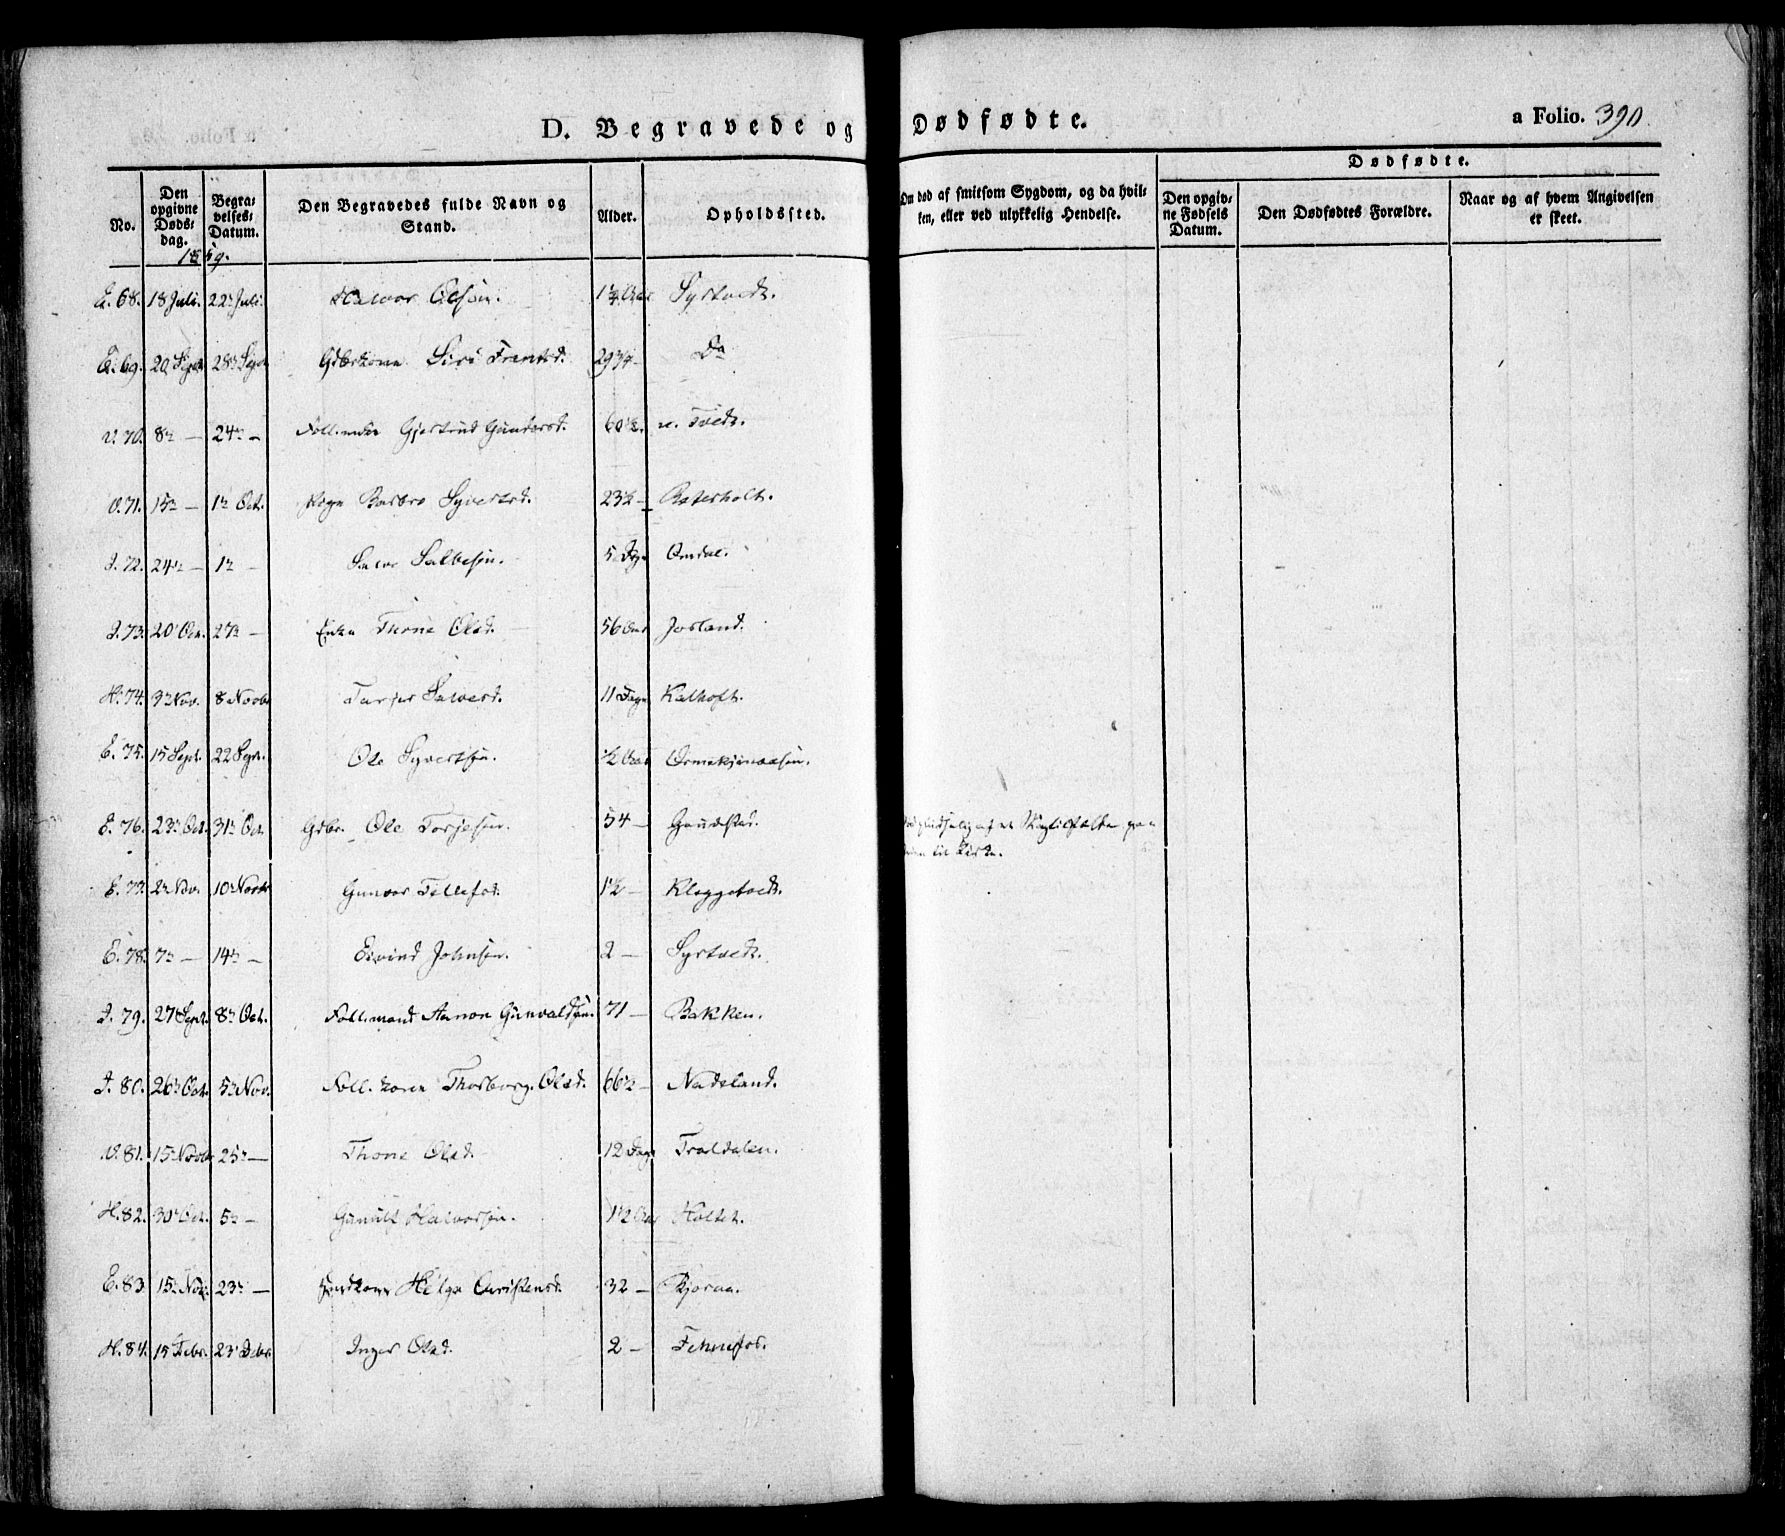 D. Begravede og Dødfødte.
a Folio. 390
No.
Den opgivne Døds-dag.
Begra-velses-Datum.
Den Begravedes fulde Navn og Stand.
Alder.
Opholdssted.
Om død af smitsom Sygdom, og da hvil-ken, eller ved ulykkelig Hendelse.
Dødfødte.
Den opgiv-ne Fødsels Datum.
Den Dødfødtes Forældre.
Naar og af hvem Angivelsen er skeet.
E. 68. 18 Juli. 22 Juli. Halvor Olsøn. Syrtvedt.
E. 69. 20 Sept 28 Sept Gbrkone Siri Do
V. 70. 8 — 24 — Gjertrud Gundersd. 60½. n. Tvedt.
V. 71. 15 — 1 Oct. Pige Barbro Syvertsd. 23½ —
I. 72. 24 — 1 — Salve Salvesøn. 5 Dage Omdal.
I. 73. 20 Oct. 27 — Enke Thone Olsd. 56 Aar Josland.
H. 74. 3 Nov. 8 Novbr Tarjer Salvesd. 11 Dage Kalhoft.
E. 75. 15 Sept. 22 Sept. Ole Syvertsøn. ½ Aar
E. 76. 23 Oct. 31 Oct. Gbr. Ole Torjesøn. 54 —
til Kirke.
E. 77. 2 Nov. 10 Novbr Gunvor Tellefsd. 1½ — Kleggetvedt.
E. 78. 7 — 14 — Eivind Johnsøn. 2 — Syrtvedt.
I. 79. 27 Sept. 8 Oct. Foll.mand Aanon Gunvaldsøn. 71 — Bakken.
I. 80. 26 Oct. 5 Nov. Foll.kone Thorborg Olsd. 66½ — Nadeland.
V. 81. 15 Novbr 25 — Thone Olsd. 12 Dage Traldalen.
H. 82. 30 Oct. 5 — Gunulf Halvorsøn. 1½ Aar Holtet.
E. 83. 15 Nov. 23 — Helga Christensd. 32 — Bjoraa.
H. 84. 15 Debr. 23 Debr. Inger Olsd. 2 — Fennefos.